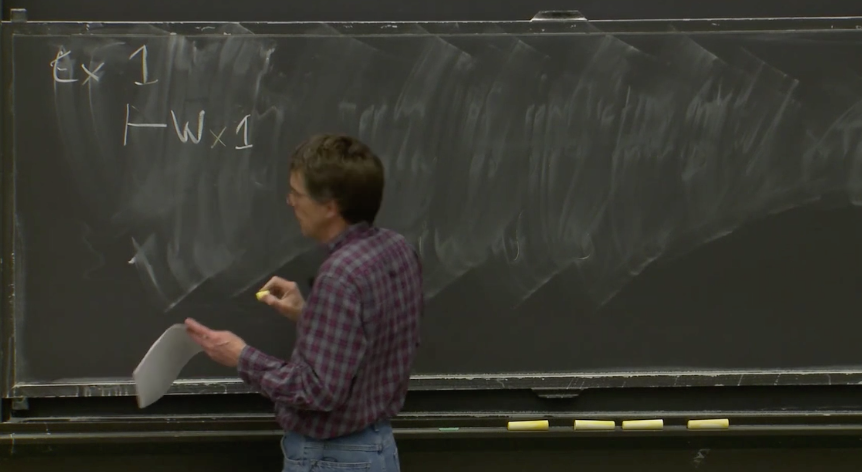 Ex 1
⊢W×1